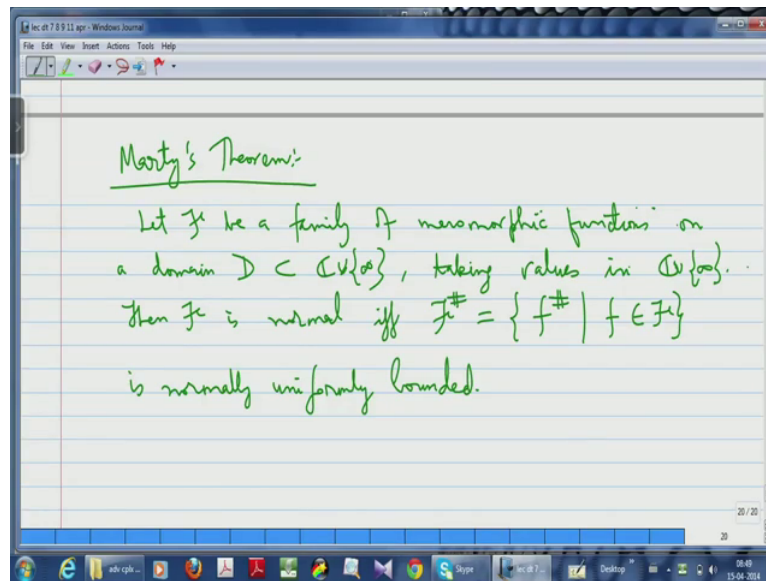 lec dt 7 8 9 11 apr - Windows Journal
File Edit View Insert Actions Tools Help
Marty's Theorem:-
Let ℱ be a family of meromorphic functions on
a domain D ⊂ ℂ∪{∞}, taking values in ℂ∪{∞}.
Then ℱ is normal iff ℱ^# = { f^# | f ∈ ℱ }
is normally uniformly bounded.
20 / 20
20
adv cplx ... Skype lec dt 7 ... Desktop 08:49
15-04-2014